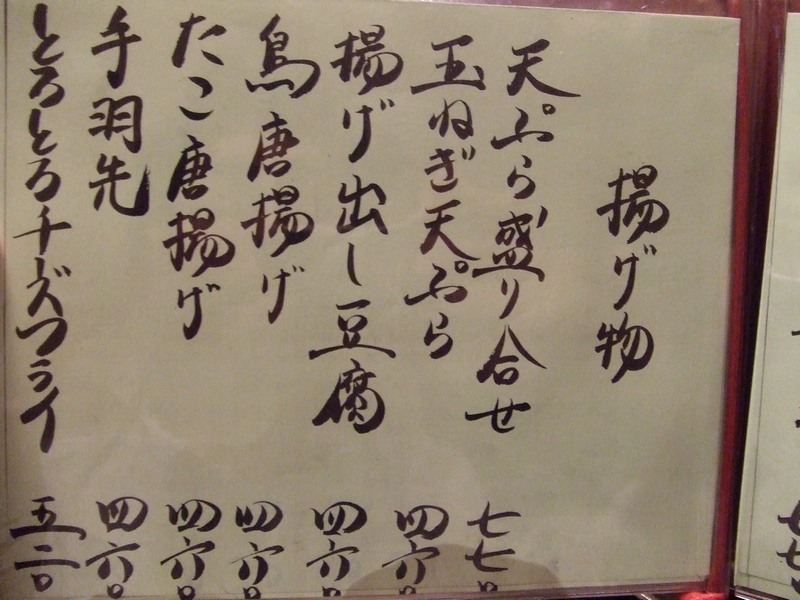 揚げ物
天ぷら盛り合せ 七七〇
玉ねぎ天ぷら 四六〇
揚げ出し豆腐 四六〇
鳥唐揚げ 四六〇
たこ唐揚げ 四六〇
手羽先 四六〇
とろとろチーズフライ 五二〇